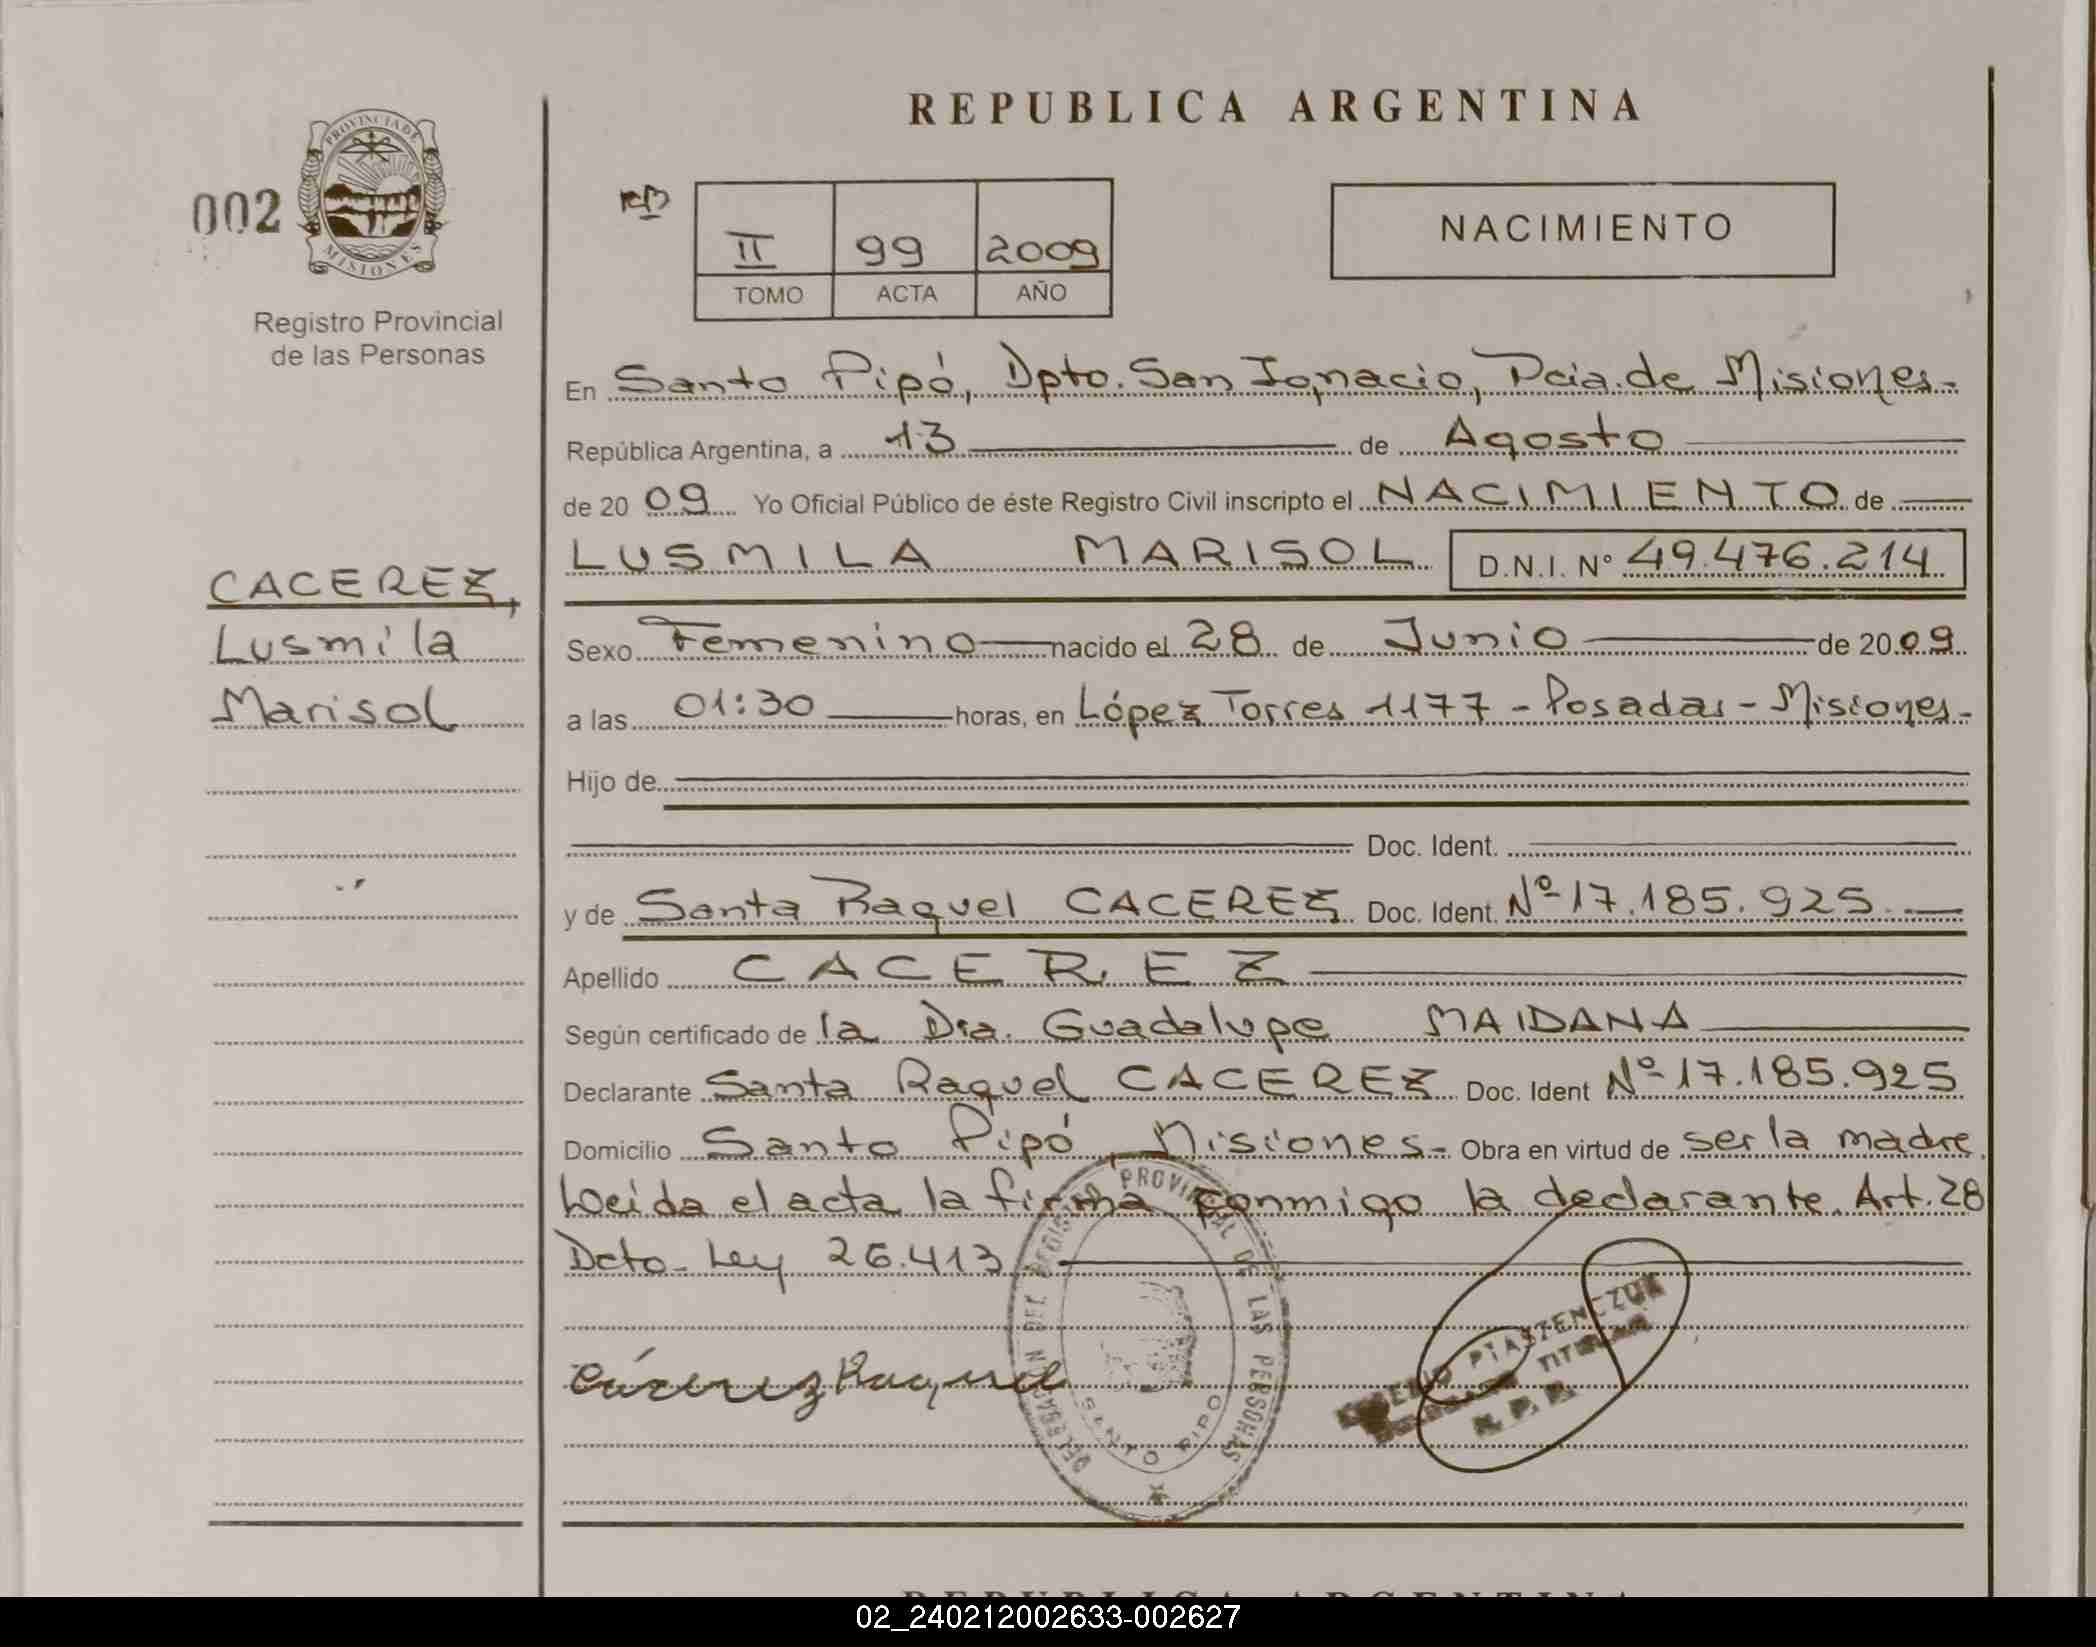 REPUBLICA ARGENTINA
002
PROVINCIA DE
MISIONES
Registro Provincial
de las Personas
II 99 2009
TOMO ACTA AÑO
NACIMIENTO
En Santo Pipó, Dpto. San Ignacio, Pcia. de Misiones-
República Argentina, a 13 de Agosto
de 20 09 Yo Oficial Público de éste Registro Civil inscripto el NACIMIENTO de
LUSMILA MARISOL D.N.I. Nº 49.476.214
CACEREZ,
Lusmila
Marisol
Sexo Femenino nacido el 28 de Junio de 20 09
a las 01:30 horas, en López Torres 1177 - Posadas - Misiones-
Hijo de
Doc. Ident.
y de Santa Raquel CACEREZ Doc. Ident. Nº 17.185.925
Apellido CACEREZ
Según certificado de la Dra. Guadalupe MAIDANA
Declarante Santa Raquel CACEREZ Doc. Ident Nº 17.185.925
Domicilio Santo Pipó, Misiones- Obra en virtud de ser la madre.
Leída el acta la firma conmigo la declarante. Art. 28
Dcto- Ley 26.413
Cácerez Raquel
DELEGACION DEL REGISTRO PROVINCIAL DE LAS PERSONAS
SANTO PIPO
PIASZENCZUK
TITULAR
R. P. P.
REPUBLICA ARGENTINA
02_240212002633-002627